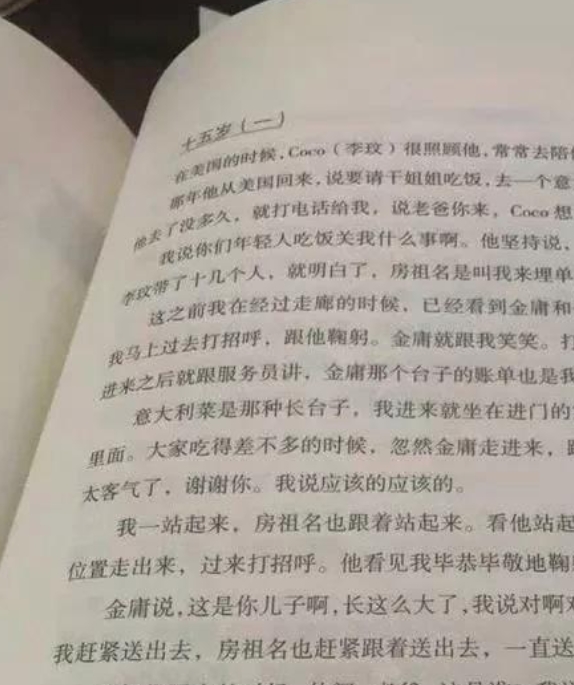 十五岁（一）
在美国的时候，Coco（李玟）很照顾他，常常去陪
那年他从美国回来，说要请干姐姐吃饭，去一个意
他去了没多久，就打电话给我，说老爸你来，Coco 想
我说你们年轻人吃饭关我什么事啊。他坚持说，
李玟带了十几个人，就明白了，房祖名是叫我来埋单
这之前我在经过走廊的时候，已经看到金庸和
我马上过去打招呼，跟他鞠躬。金庸就跟我笑笑。打
进来之后就跟服务员讲，金庸那个台子的账单也是我
意大利菜是那种长台子，我进来就坐在进门的
里面。大家吃得差不多的时候，忽然金庸走进来，
太客气了，谢谢你。我说应该的应该的。
我一站起来，房祖名也跟着站起来。看他站起
位置走出来，过来打招呼。他看见我毕恭毕敬地鞠
金庸说，这是你儿子啊，长这么大了，我说对啊
我赶紧送出去，房祖名也赶紧跟着送出去，一直送